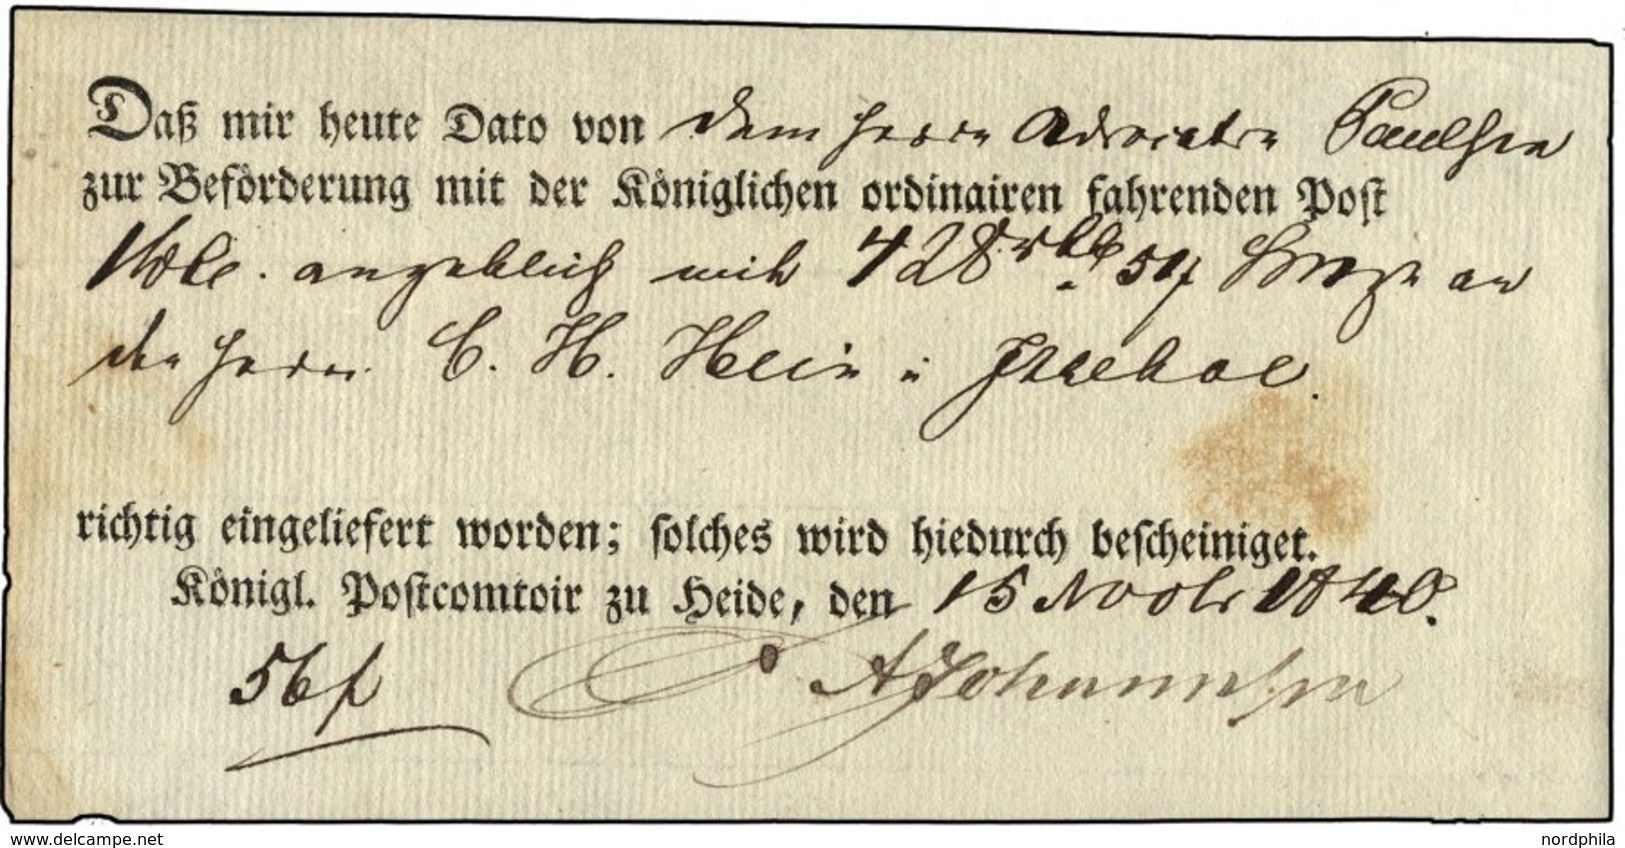 Daß mir heute Dato von dem Herrn Advocaten Paulsen
zur Beförderung mit der Königlichen ordinairen fahrenden Post
angeblich mit 428 rbth 51 an
den Herrn C. H. Hein in Itzehoe.
richtig eingeliefert worden; solches wird hiedurch bescheiniget.
Königl. Postcomtoir zu Heide, den 15 Novbr 1840.
56 ß Johannsen
www.delcampe.net
nordphila